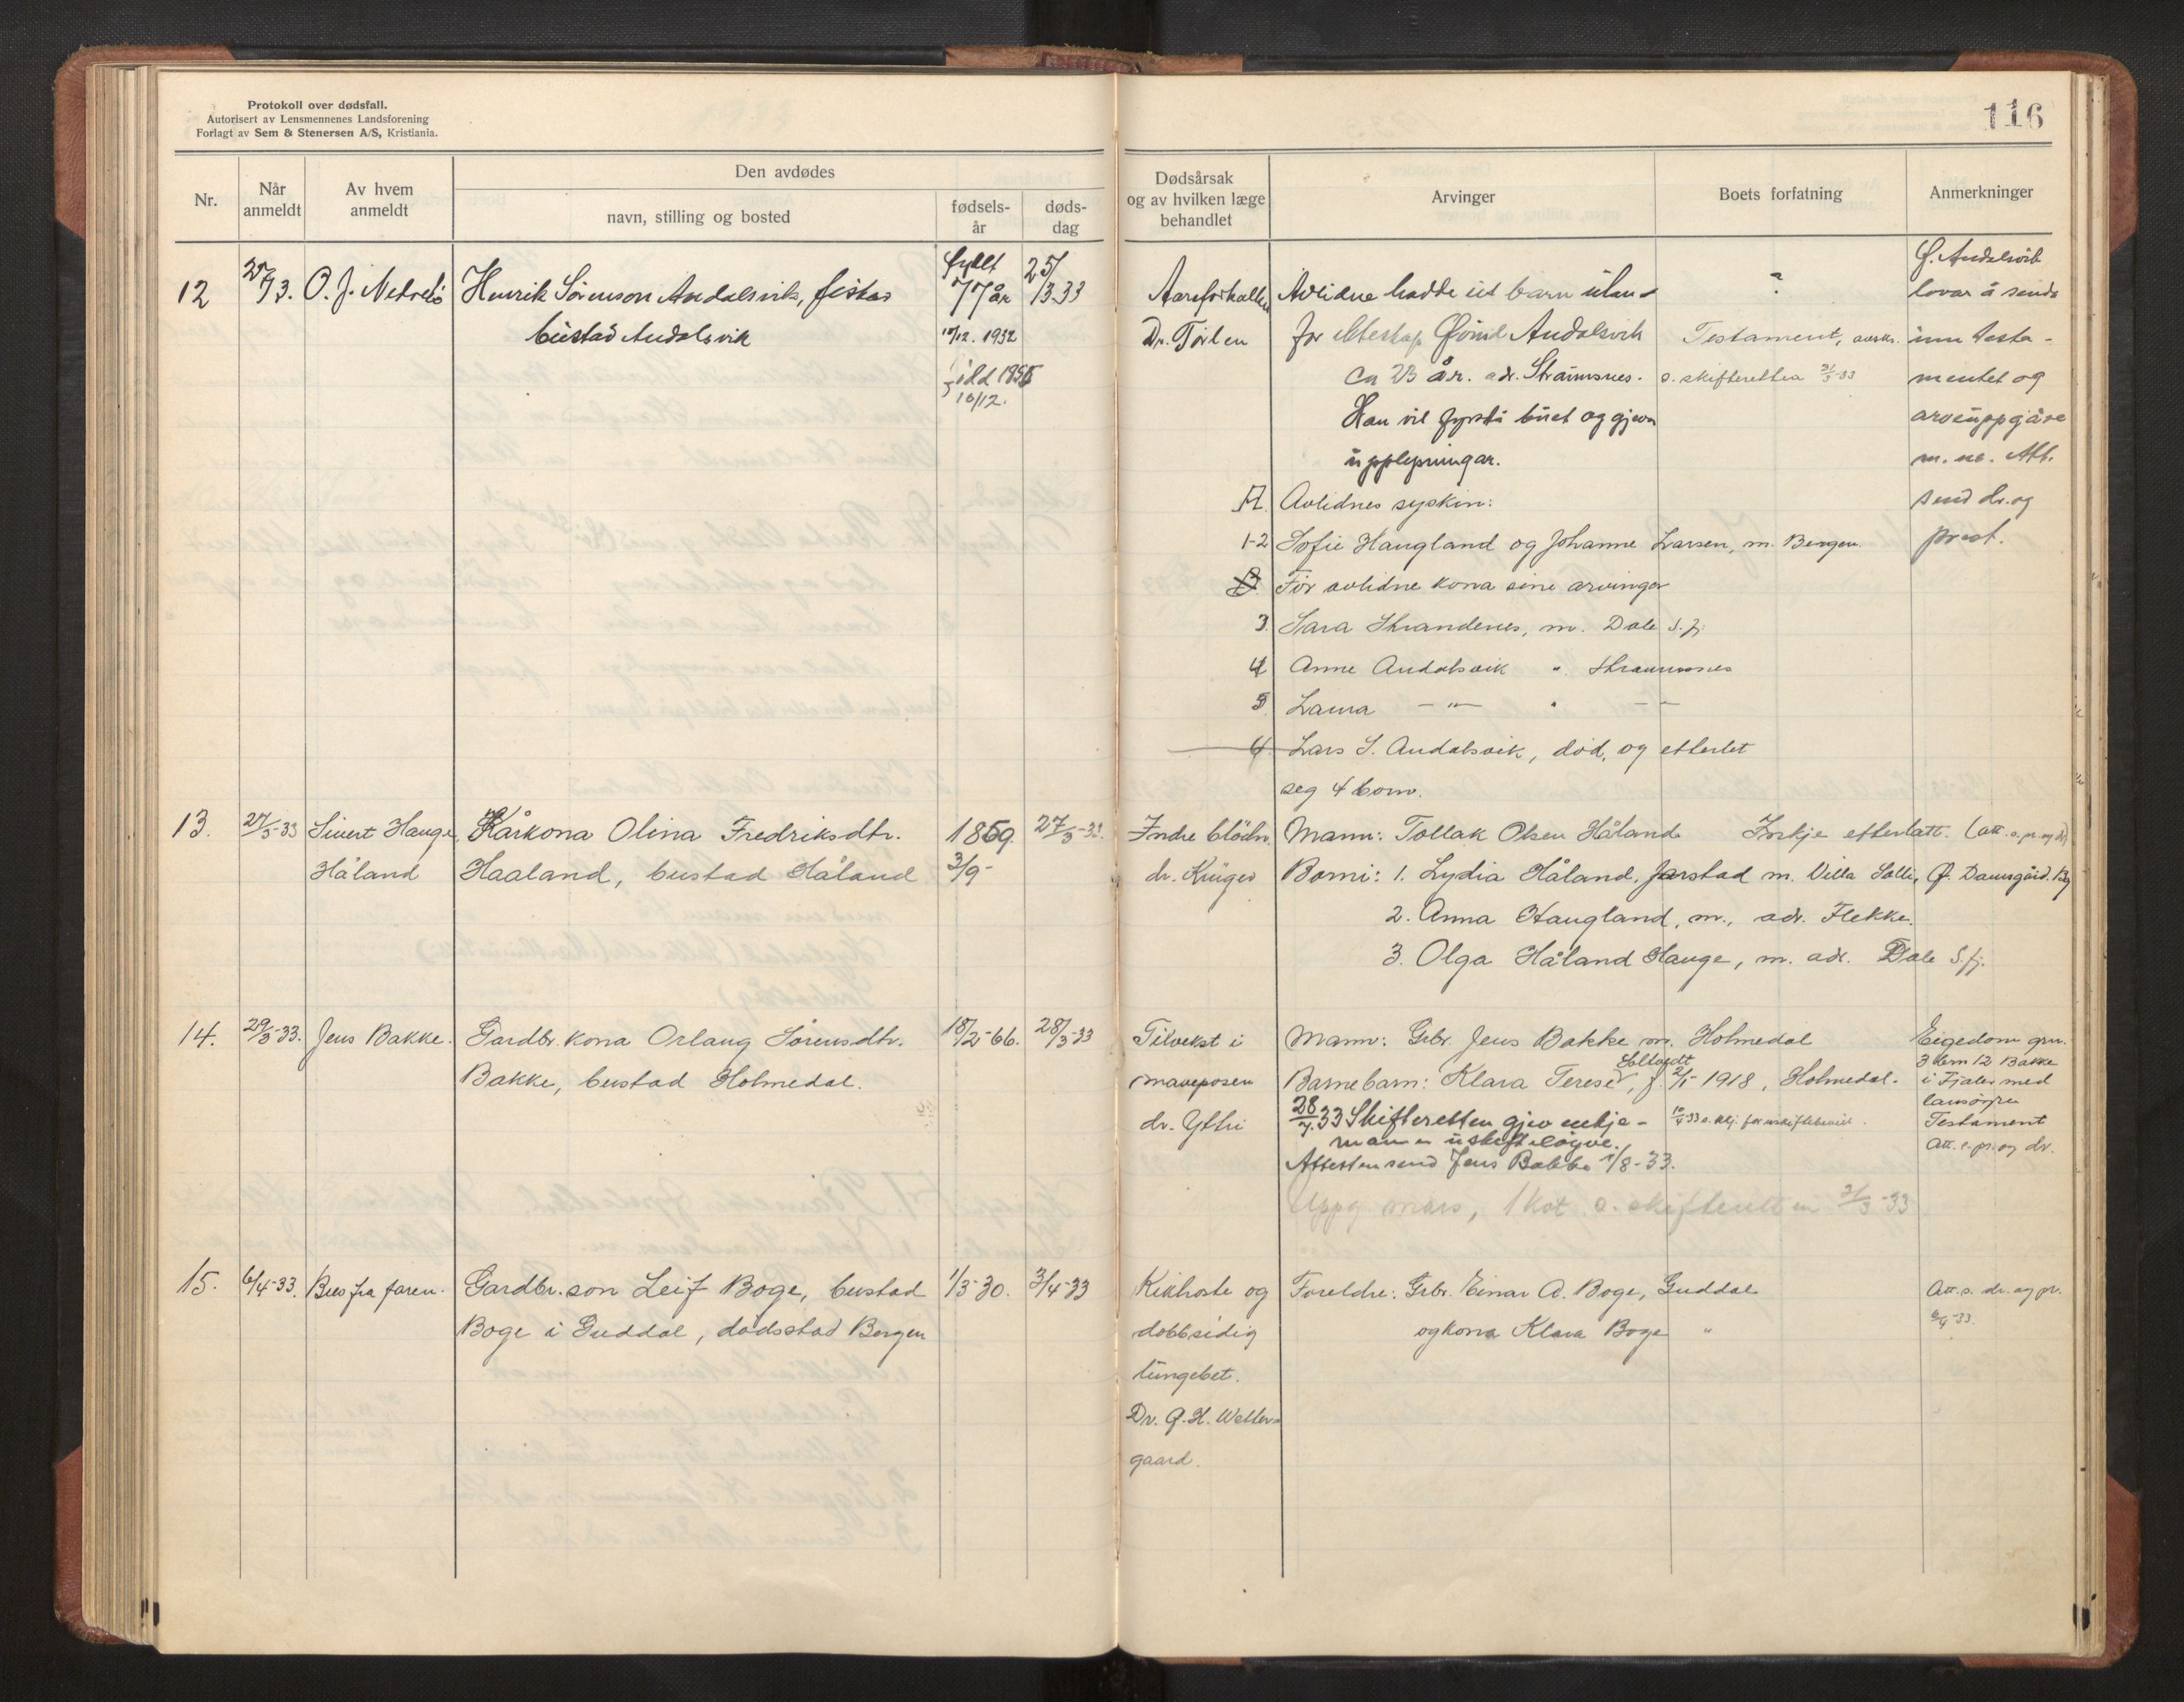 Protokoll over dødsfall.
Autorisert av Lensmennenes Landsforening
Forlagt av Sem & Stenersen A/S, Kristiania.
116
Nr.
Når anmeldt
Av hvem anmeldt
Den avdødes
navn, stilling og bosted
fødsels-år
døds-dag
Dødsårsak og av hvilken læge behandlet
Arvinger
Boets forfatning
Anmerkninger
12
O. J.
Henrik Sørenson Andalsvik, fiskar
bustad Andalsvik
fyllt
77 år
10/12. 1932
10/12.
25/3 33
Aareforkalkn
Avlidne hadde eit barn utan-
for ekteskap Andalsvik
ca 23 år. adr. Straumsnes.
Han vil fyrstå buet og gjeva
upplysningar.
?
Testament,
s. skifteretten 31/3-33
lovar å senda
inn testa-
mentet og
arveuppgåve
m. m. Att.
send dr. og
prest.
A. Avlidnes syskin:
1-2 Sofie Haugland og Johanne Larsen, m. Bergen.
Før avlidne kona sine arvingar
3. Sara Strandenes, m. Dale S.fj.
4 Anne Andalsvik " Straumsnes
5 Laura — " — " — " —
Lars S. Andalsvik, död, og etterlet
seg 4 born.
13.
27/3-33
Sivert Hauge
Håland
Kårkona Olina Fredriksdtr.
Haaland, bustad Håland
1859.
3/9-
27/3-33.
Indre blödn.
dr. Krüger
Mann: Tollak Olsen Håland
Inkje etterlatt.
Borni: 1. Lydia Håland, Jarstad m. Villa Solli, Damsgård. Bg
2. Anna Haugland, m., adr. Flekke.
3. Olga Håland Hauge, m. adr. Dale S.fj.
14.
29/3-33.
Jens Bakke.
Gardbr. kona Orlaug Sörensdtr.
Bakke, bustad Holmedal.
18/2-66.
28/3-33
Tilvekst i
maveposen
dr. Ytri
Mann: Gbr. Jens Bakke m. Holmedal
Barnebarn: Klara Terese, f. 2/1-1918, Holmedal.
28/7.33 Skifteretten gjev enkje-
mannen uskifteløyve.
Attesten send Jens Bakke 1/8-33.
Uppg mars, 1 kat. s. skifteretten 31/3-33
Eigedom grn.
3 brn 12 Bakke
i Fjaler med
lausøyre
Testament
Att. s. pr. og dr.
15.
6/4-33.
Brev fra faren.
Gardbr. son Leif Boge, bustad
Boge i Guddal, dødsstad Bergen
1/3-30.
3/4-33
Kikhoste og
dobbsidig
lungebet.
Dr. G. H. Wetter-
gaard.
Foreldre: Gbr. Einar A. Boge, Guddal
og kona Klara Boge "
Att. s. dr. og pr.
6/4-33.